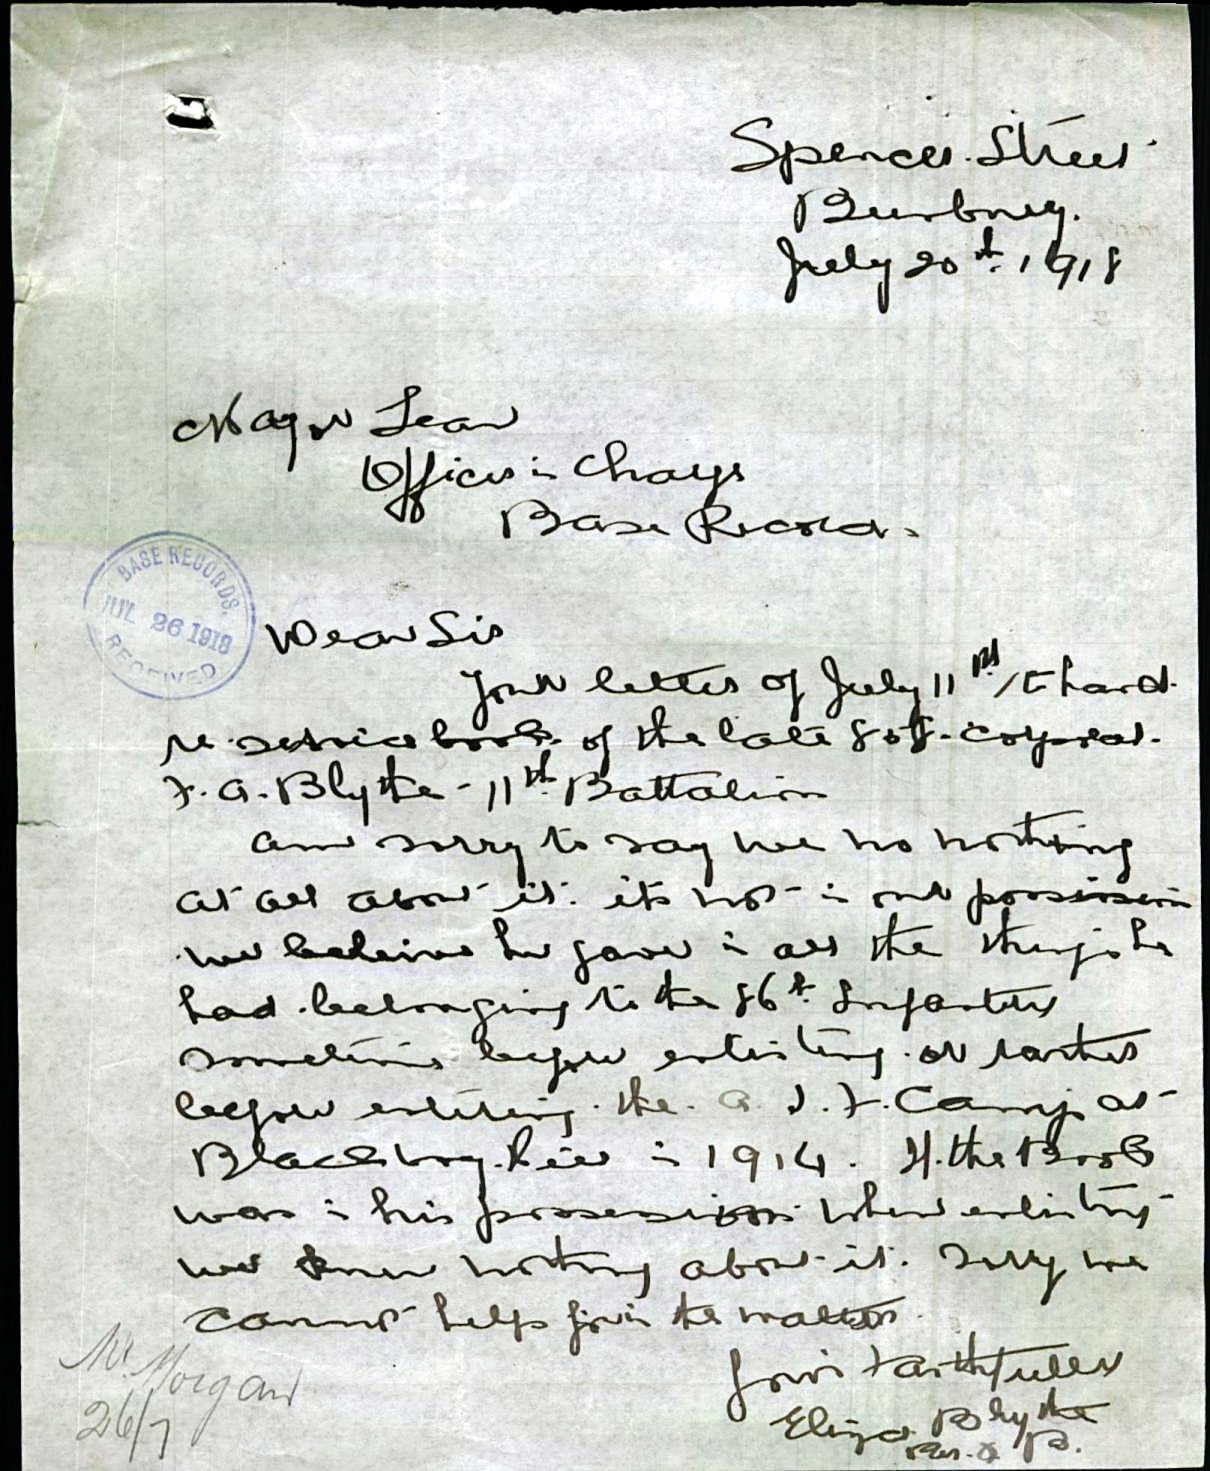 Spencer Street
Bunbury.
July 20th. 1918
Major Lean
Officer in Charge
Base Records.
BASE RECORDS.
JUL 26 1918
RECEIVED
Dear Sir
Your letter of July 11th / to hand.
re service book of the late 808. Corporal.
F. A. Blythe - 11th Battalion
am sorry to say we no nothing
at all about it. its not in our possession
we believe he gave in all the things he
had belonging to the 86th Infantry
sometime before enlisting. or rather
before entering. the. A. I. F. Camp at
Blackboy. Hill in 1914. If. the Book
was in his possession when enlisting
we knew nothing about it. Sorry we
cannot help you in the matter.
Yours Faithfully
Eliza Blythe
Mr Morgan
26/7